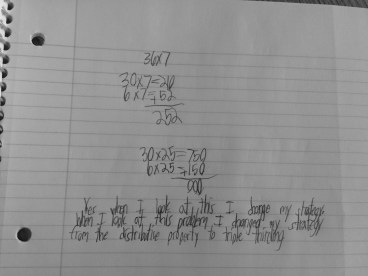 36x7
30x7=210
6x7=+52
252
30x25=750
6x25=+150
900
Yes when I look at this I change my strategy
when I look at this problem I changed my strategy
from the distributive property to triple